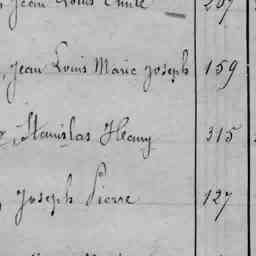 Jean Louis Emile 207
, Jean Louis Marie Joseph 159
, Stanislas Henry 315
Joseph Pierre 127